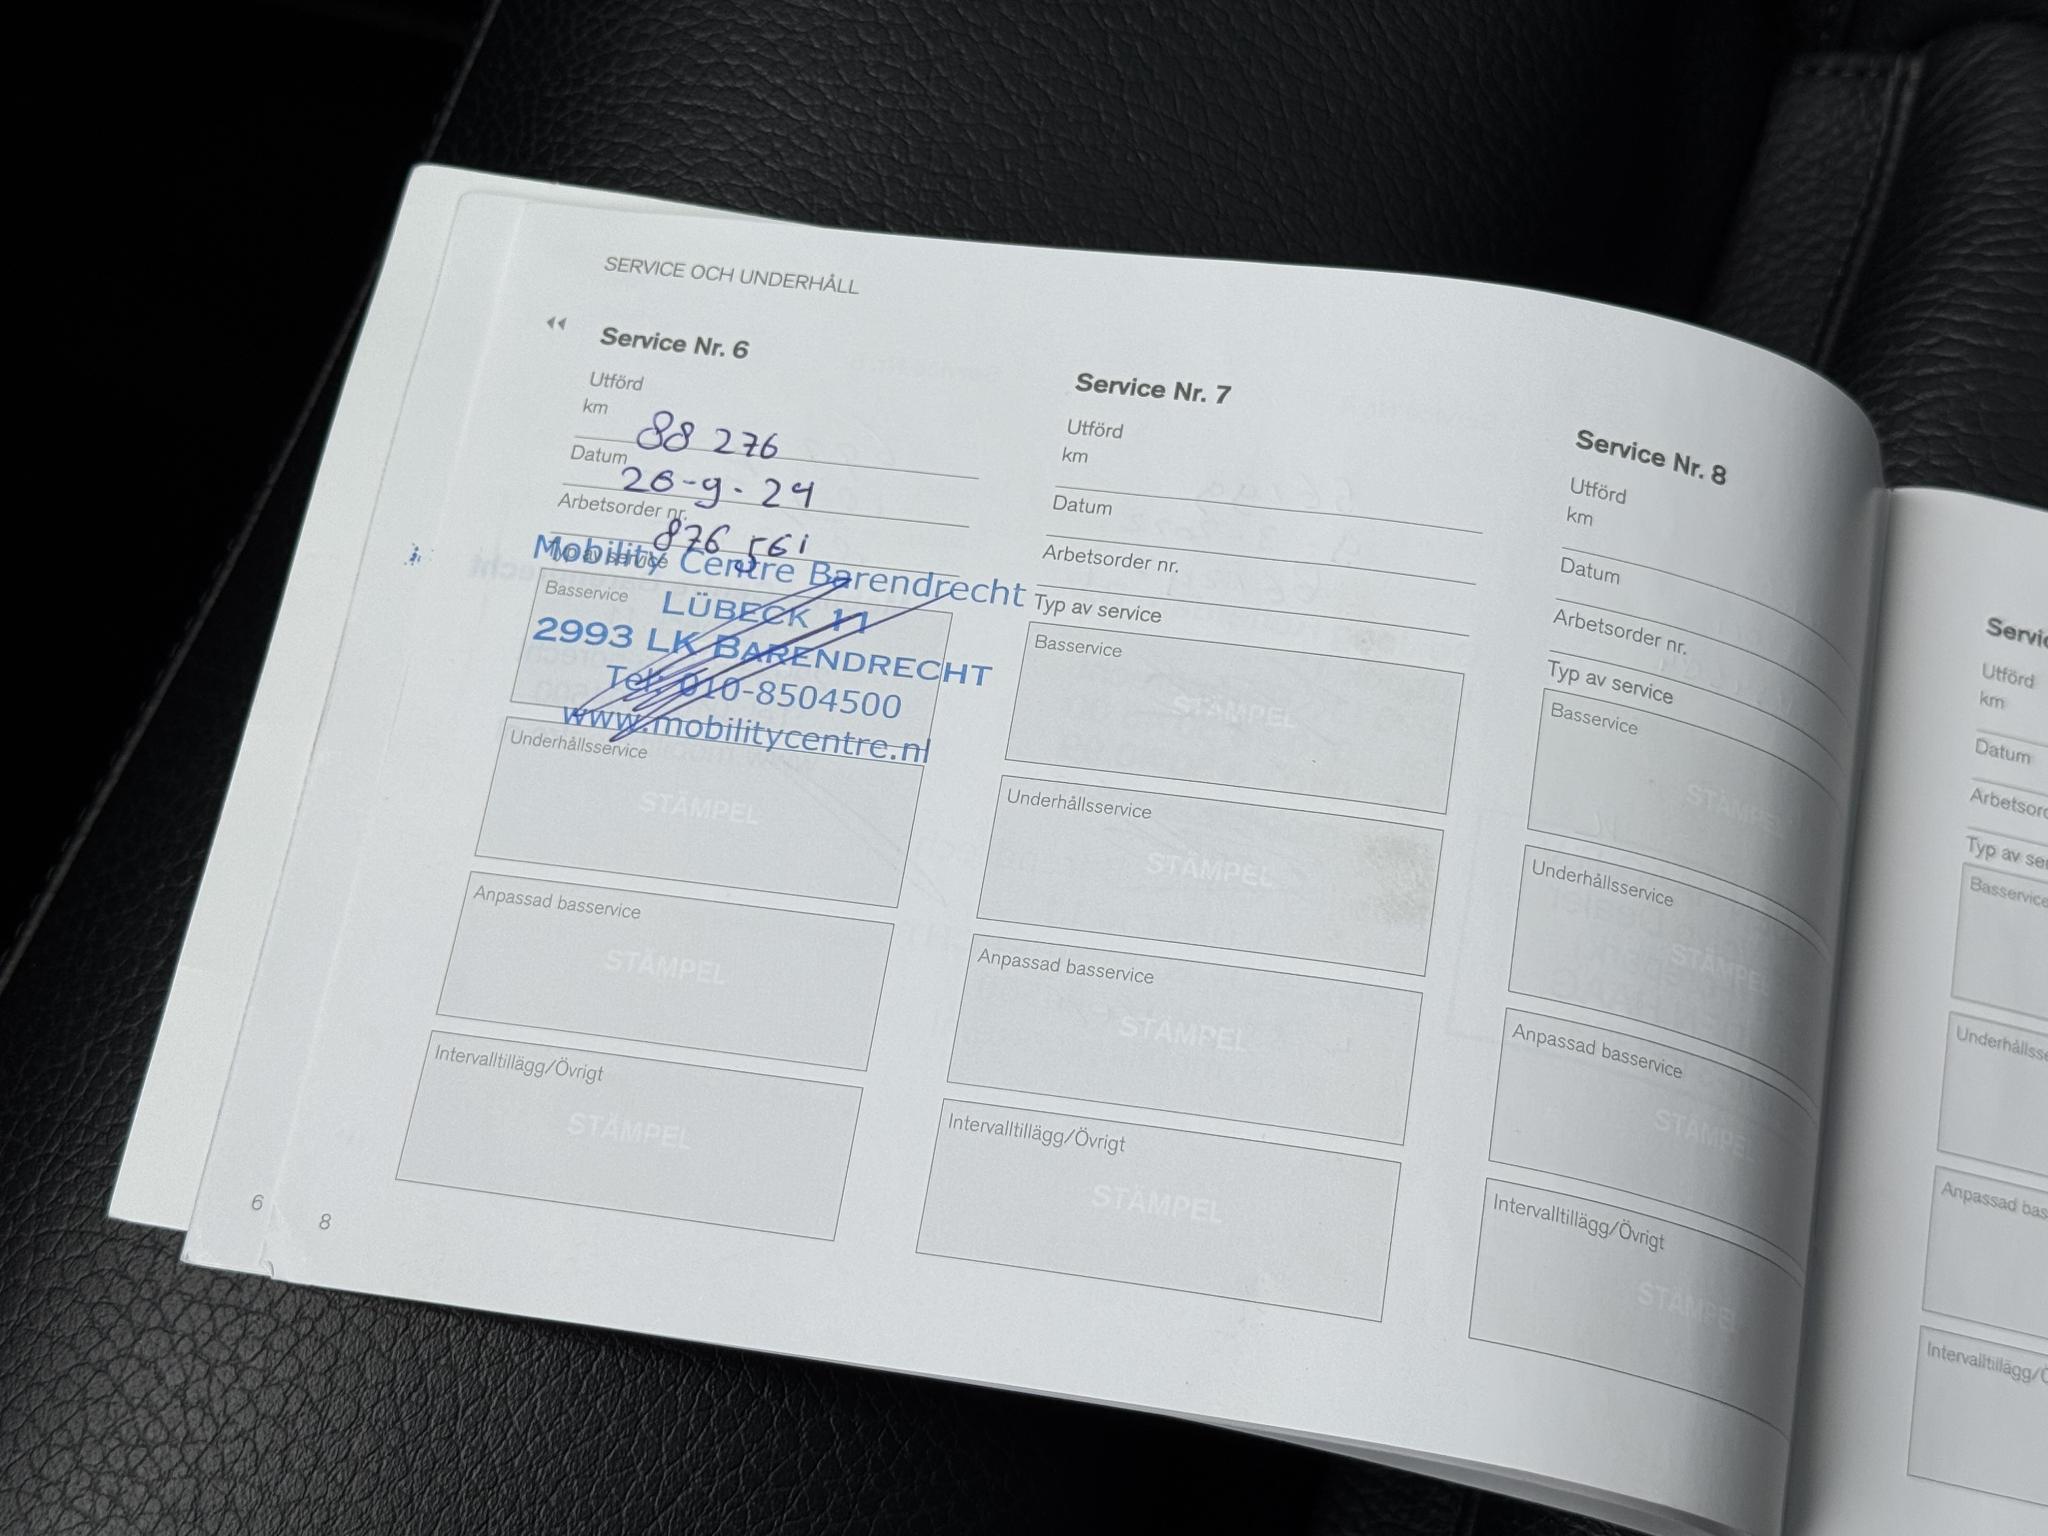 SERVICE OCH UNDERHÅLL
Service Nr. 6
Utförd
km
88 276
Datum
26-9-24
Arbetsorder nr.
876 561
Typ av service
Mobility Centre Barendrecht
Basservice
LÜBECK 11
2993 LK BARENDRECHT
Tel: 010-8504500
www.mobilitycentre.nl
Underhållsservice
STÄMPEL
Anpassad basservice
STÄMPEL
Intervalltillägg/Övrigt
STÄMPEL
6
8
Service Nr. 7
Utförd
km
Datum
Arbetsorder nr.
Typ av service
Basservice
STÄMPEL
Underhållsservice
STÄMPEL
Anpassad basservice
STÄMPEL
Intervalltillägg/Övrigt
STÄMPEL
Service Nr. 8
Utförd
km
Datum
Arbetsorder nr.
Typ av service
Basservice
STÄMPEL
Underhållsservice
STÄMPEL
Anpassad basservice
STÄMPEL
Intervalltillägg/Övrigt
STÄMPEL
Utförd
km
Datum
Typ av
Basservice